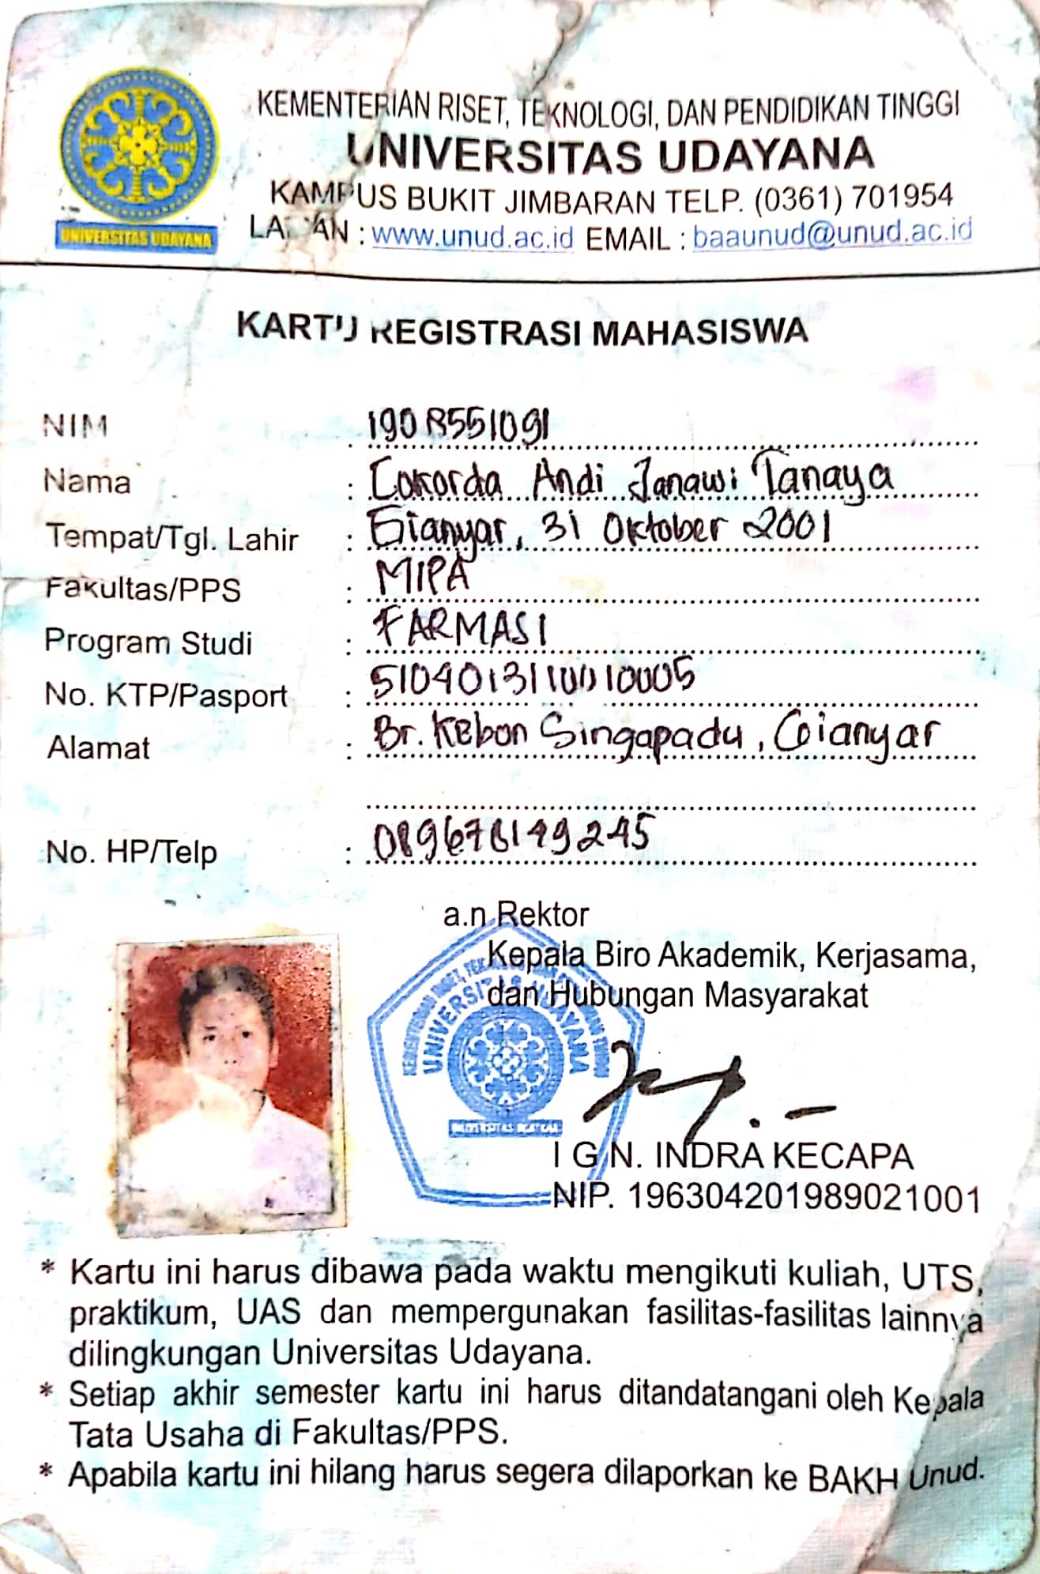 KEMENTERIAN RISET, TEKNOLOGI, DAN PENDIDIKAN TINGGI
UNIVERSITAS UDAYANA
KAMPUS BUKIT JIMBARAN TELP. (0361) 701954
LAMAN : www.unud.ac.id EMAIL : baaunud@unud.ac.id
UNIVERSITAS UDAYANA
KARTU REGISTRASI MAHASISWA
NIM : 1908551091
Nama : Cokorda Andi Janawi Tanaya
Tempat/Tgl. Lahir : Gianyar, 31 Oktober 2001
Fakultas/PPS : MIPA
Program Studi : FARMASI
No. KTP/Pasport : 5104013110010005
Alamat : Br. Kebon Singapadu, Gianyar
No. HP/Telp :
a.n Rektor
Kepala Biro Akademik, Kerjasama,
dan Hubungan Masyarakat
UNIVERSITAS UDAYANA
I G N. INDRA KECAPA
NIP. 196304201989021001
* Kartu ini harus dibawa pada waktu mengikuti kuliah, UTS,
praktikum, UAS dan mempergunakan fasilitas-fasilitas lainnya
dilingkungan Universitas Udayana.
* Setiap akhir semester kartu ini harus ditandatangani oleh Kepala
Tata Usaha di Fakultas/PPS.
* Apabila kartu ini hilang harus segera dilaporkan ke BAKH Unud.